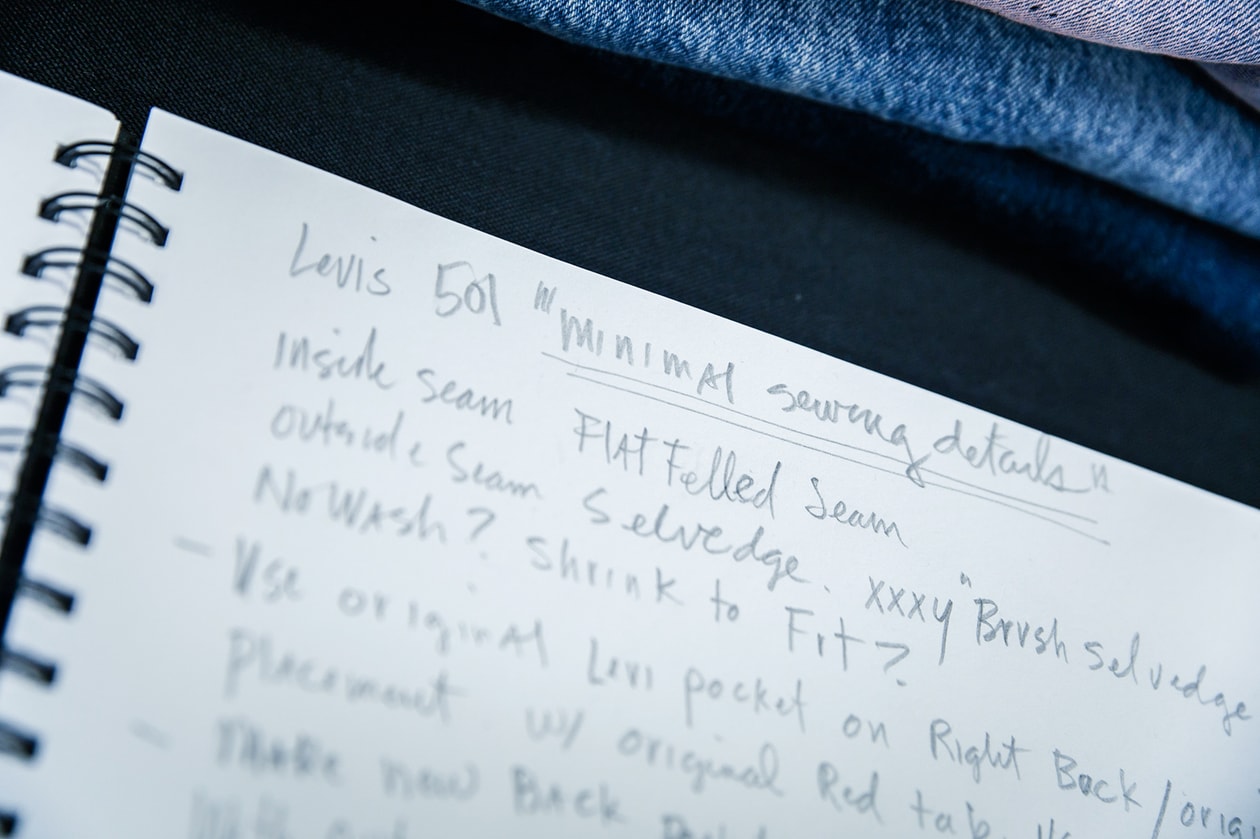 Levis 501 "minimal sewing details"
Inside seam Flat Felled Seam
outside Seam Selvedge. XXXX "Brush selvedge
No WAsh? Shrink to Fit?
— Use original Levi pocket on Right Back/orig
placement w/ original Red tab.
— Make new Back